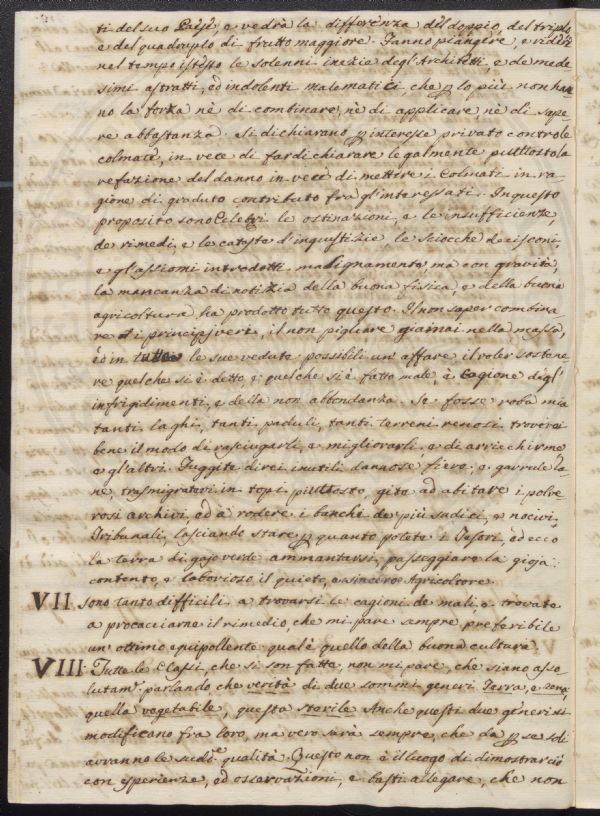 ti del suo Paese, e vedrà la differenza del doppio, del triplo
e del quadruplo di frutto maggiore. Fanno piangere, e ridere
nel tempo istesso le solenni inezie degl'Architetti, e de mede
simi astratti, ed indolenti matematici, che p lo più non han
no la forza nè di combinare, nè di applicare, nè di sape
re abbastanza. Si dichiarano p interesse privato contro le
colmate, in vece di far dichiarare legalmente piuttosto la
refazione del danno in vece di mettere i Colmati in ra-
gione di graduto contributo fra gl'interessati. In questo
proposito sono Celebri le ostinazioni, e le insufficienze
de rimedi, e le cataste d'ingiustizie, le sciocche decisioni,
e gl'assiomi introdotti malignamente ma con gravità,
la mancanza di notizia della buona fisica, e della buona
agricoltura ha prodotto tutto questo. Il non saper combina
re i principj veri, il non pigliare giamai nella massa,
ed in tutte le sue vedute possibili un'affare, il voler sostene
re quel che si è detto, e quel che si è fatto male, è Cagione degl'
infrigidimenti, e della non abbondanza. Se fosse roba mia
tanti laghi, tanti paduli, tanti terreni renosi troverei
bene il modo di rasciugarli, e migliorarli, e di arricchirme
e gl'altri. Fuggite direi inutili dannose fiere, e garrule la
ne, trasmigratevi in topi piuttosto, gite ad abitare i polve
rosi archivi, ed a rodere i banchi de più sudici, e nocivi,
Tribunali, lasciando stare p quanto potete i Tesori, ed ecco
la terra di gajo verde ammantarsi, passeggiare la gioja
contento, e laborioso il quieto, e sincero Agricoltore.
VII Sono tanto difficili a trovarsi le cagioni de mali, e trovate
a procacciarne il rimedio che mi pare sempre preferibile
un'ottimo equipollente qual è quello della buona cultura
VIII Tutte le Classi, che si son fatte, non mi pare, che siano asso
lutam.e parlando che verità di due sommi generi Terra, e rena,
quella vegetabile, questa sterile. Anche questi due generi si
modificano fra loro, ma vero sarà sempre, che da p se soli
avranno le sud.e qualità. Questo non è il luogo di dimostrarciò
con esperienze, ed osservazioni, e basti allegare, che non